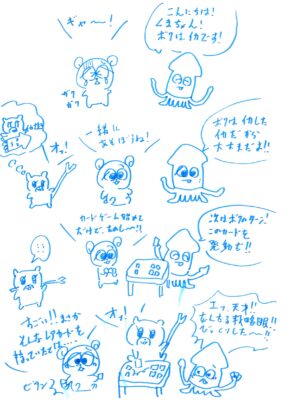 こんにちは！
くまちゃん！
ボクはイカです！
ギャ〜〜！
ガク
ガク
ボクはイカした
イカだから
大丈夫だよ!!
一緒に
あそぼうね！
オッ！
次はボクのターン！
このカードを
発動だ!!
カードゲーム始めて
だけど、たのし〜!!
...
エッ、天才!!
なんたる戦略眼!!
びっくりした〜!!
オッ！
すごい!! まさか
そんなレアカードを
持っていたとは…